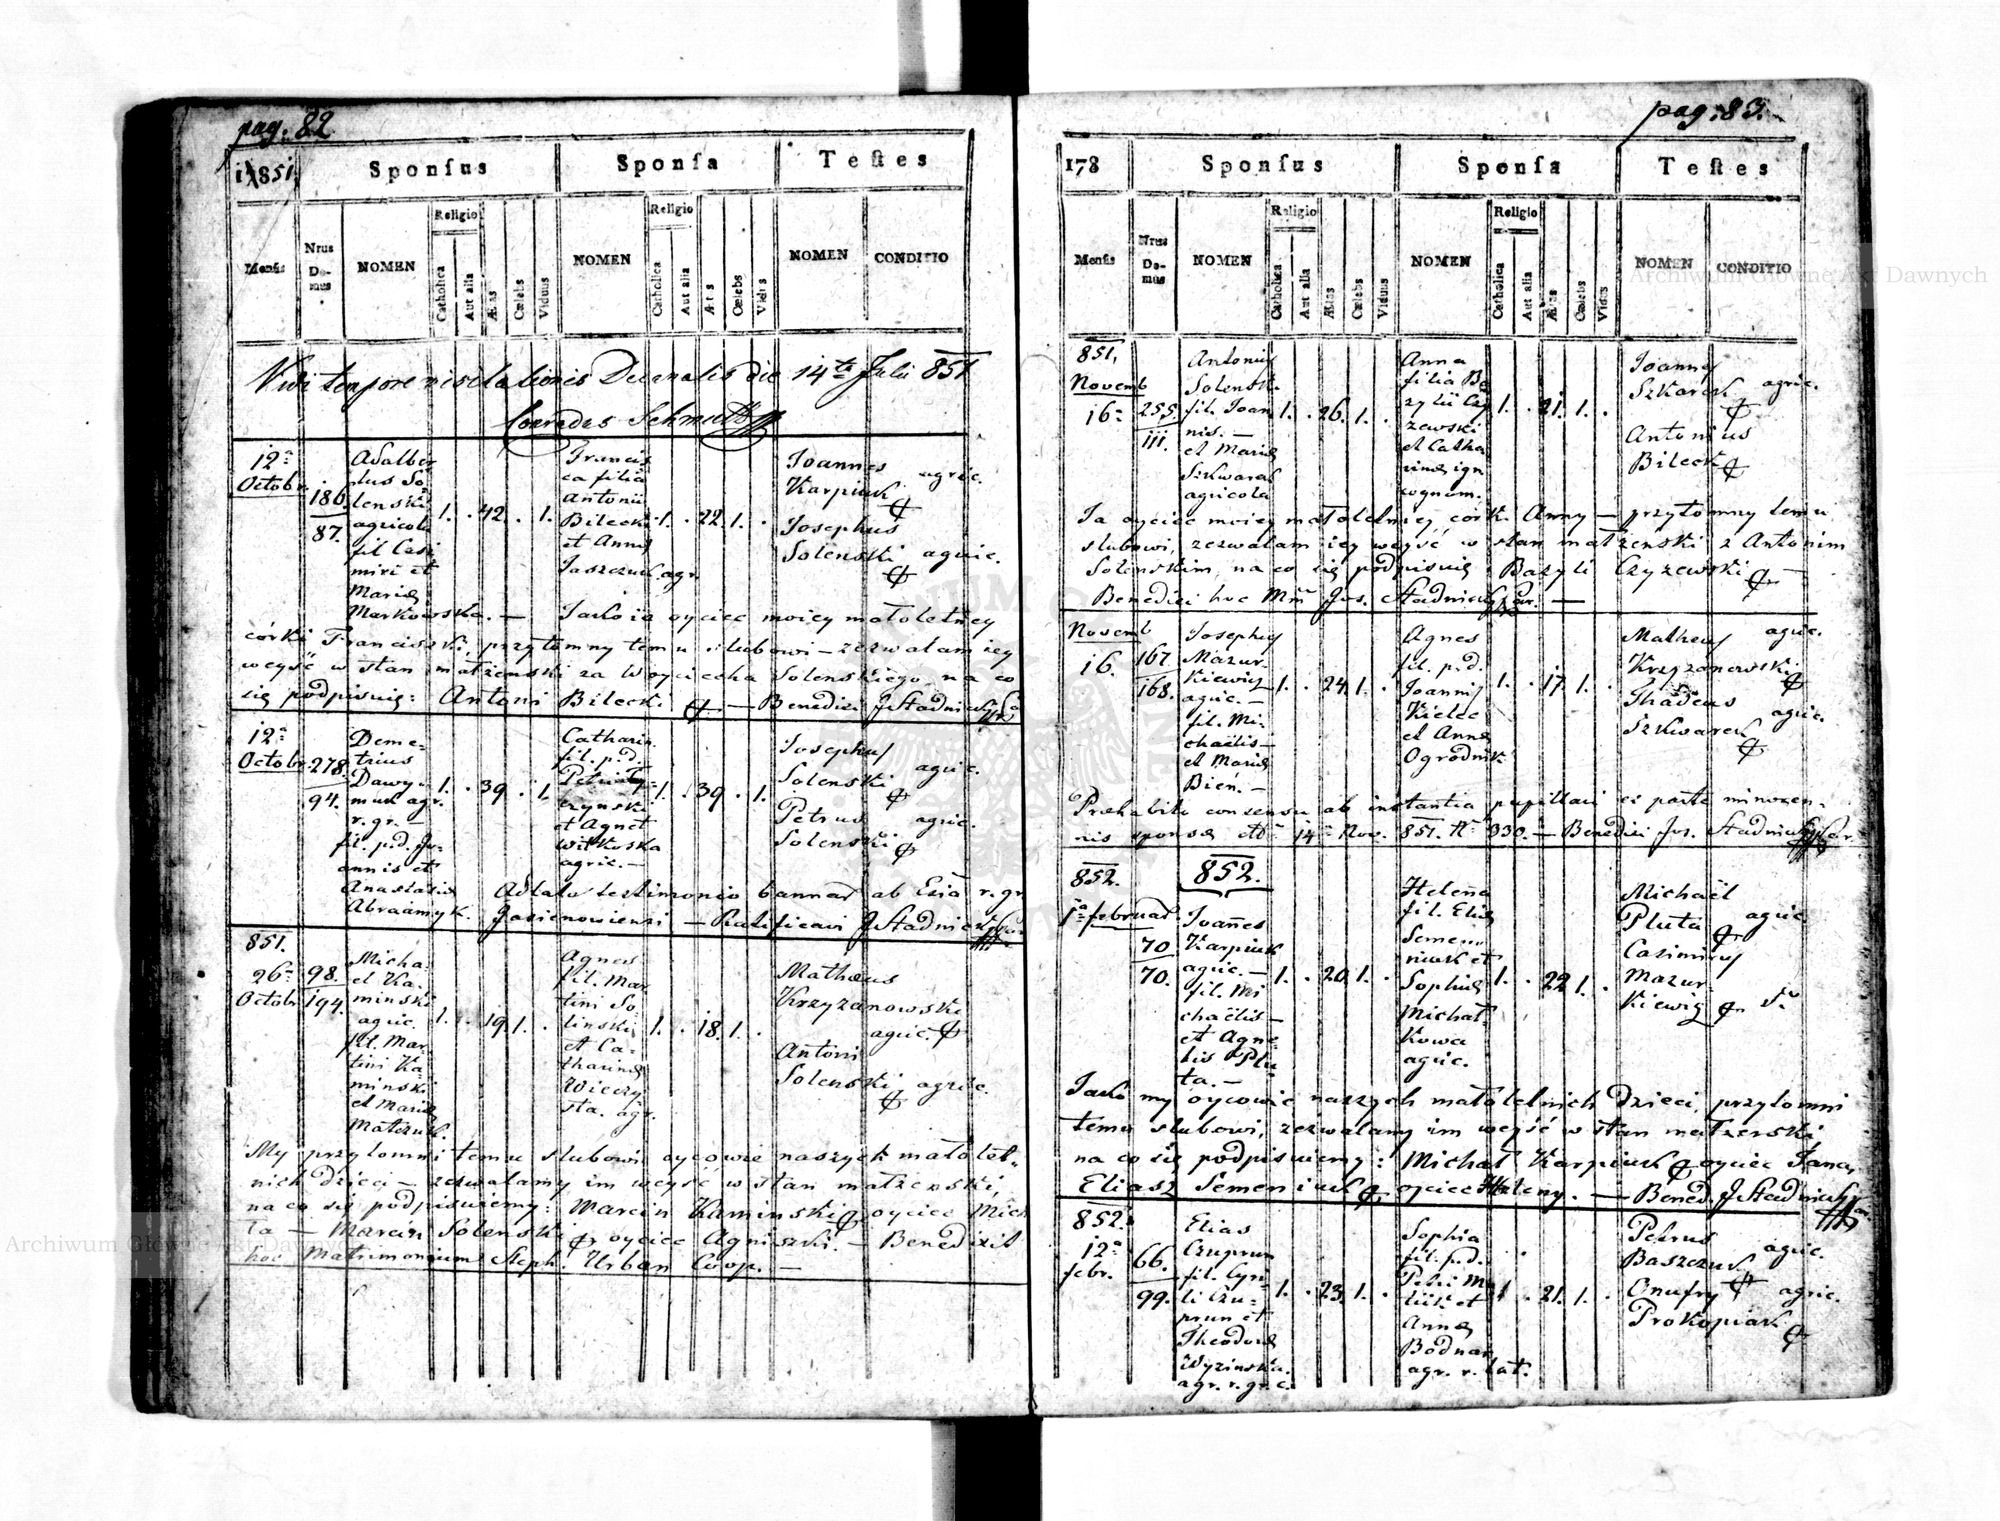 pag: 82
1851.
Sponſus
Sponſa
Teſtes
Menſis
Nrus Domus
NOMEN
Religio
Catholica
Aut alia
Ætas
Cœlebs
Viduus
NOMEN
Religio
Catholica
Aut alia
Cœlebs
NOMEN
CONDITIO
Vidi tempore visitationis Decanalis die 14ta Julii 851
Conradus Schmidt
12a
Octobr.
186.
87.
Adalber
tus So
lenski
agricola
fil Casi
miri et
Mariæ
Markowska. —
1. . 42. . 1.
Francis
ca filia
Antonii
Bilecki
et Annæ
Jaszczuk agr.
1. . 22. 1. .
Joannes
Karpiuk
agric.
Josephus
Solenski agric.
Jako ia oyciec moiey małoletney
córki Franciszki, przytomny temu slubowi – zezwalam iey
weyść w stan małżenski za Woyciecha Solenskiego, na co
się podpisuię: Antoni Bilecki — Benedixi J Stadnicki
12a
Octobr.
278.
94.
Deme-
trius
Dawy-
muk agr.
r. gr. —
fil. p.d. Jo-
annis et
Anastasiæ
Abraamyk.
1. . 39. . 1.
Catharin.
fil. p.d.
czynski
et Agnet
witkoska
agric. —
1. . 39. . 1.
Josephus
Solenski
agric.
Petrus
Solenski
agric.
Adlato testimonio bannar ab Ecia r. gr.
Jasienowiensi — Ratificavi J Stadnicki
851.
26a
Octobr.
98.
194.
Micha-
el Ka-
minski
agric.
fil. Mar-
tini Ka-
minski
et Mariæ
Matczuk.
1. . 19. 1. .
Agnes
fil. Mar
tini So
linski
et Ca-
tharinæ
Wieczy-
sta. agr.
1. . 18. 1. .
Mathæus
Krzyzanowski
agric.
Antoni
Solenski agric.
My przytomni temu slubowi oycowie naszych małolet-
nich dzieci – zezwalamy im weyść w stan małżenski,
na co się podpisuiemy: Marcin Kaminski oyciec Mich
ła — Marcin Solenski oyciec Agniszki. — Benedixit
hoc Matrimonium Steph. Urban Coop. —
pag: 83.
178
Sponſus
Sponſa
Teſtes
Menſis
Nrus Domus
NOMEN
Religio
Catholica
Aut alia
Ætas
Cœlebs
Viduus
NOMEN
Religio
Catholica
Aut alia
Ætas
Cœlebs
Viduus
NOMEN
CONDITIO
851.
Novemb
16a
255.
111.
Antonius
Solenski
fil. Joan
nis. —
et Mariæ
Szkwarek
agricola
1. . 26. 1. .
Anna
filia Ba
zylii Czy
zewski
et Catha
rinæ ign
cognom.
1. . 21. 1. .
Joannes
Szkarek
agric.
Antonius
Bilecki
Ja oyciec moiey małoletniey córki Anny — przytomny temu
slubowi, zezwalam iey weyść w stan małżenski z Antonim
Solenskim, na co się podpisuię: Bazyli Czyzewski —
Benedixi hoc Mm Jos. Stadnicki Par. —
Novemb
16.
167.
168.
Josephus
Mazur-
kiewicz
agric. —
fil. Mi-
chaëlis —
et Mariæ
Bień. —
1. . 24. 1. .
Agnes
fil. p.d.
Joannis
Kielec
et Annæ
Ogrodnik
1. . 17. 1. .
Matheus
agric.
Krzyzanowski
Thadeus
agric.
Szkwarek
Prehabito consensu ab instantia pupillari ex parte minoren-
nis sponsæ 14a Nov. 851. N. 330. — Benedixi Jos. Stadnicki Par.
852.
852.
1a februar.
70
70.
Joañes
Karpiuk
agric. —
fil. Mi
chaëlis —
et Agne-
tis Plu-
ta. —
1. . 20. 1. .
Helena
fil. Eliæ
Semen
niuk et
Sophiæ
Michał-
kowa
agric.
1. . 22 1. .
Michaël
Pluta
agric
Casimirus
Mazur-
kiewicz
Jako my oycowie naszych małoletnich dzieci, przytomni
temu slubowi, zezwalamy im weyść w stan małżenski,
na co się podpisuiemy: Michał Karpiuk oyciec Jana,
Eliasz Semeniuk oyciec Heleny. — Bened. J Stadnicki
852.
12a
febr.
66.
99.
Elias
Czuprun
fil. Cyri-
li Czu-
prun et
Theodoræ
Wyzinska.
agr. r. gr. c.
1. . 23. 1. .
Sophia
fil. p.d.
et
Annæ
Bodnar
agr. r. lat.
. 21. 1. .
Petrus
agric.
Baszczuk
Onufry agric.
Prokopiak
Archiwum Główne Akt Dawnych
Archiwum Główne Akt Dawnych